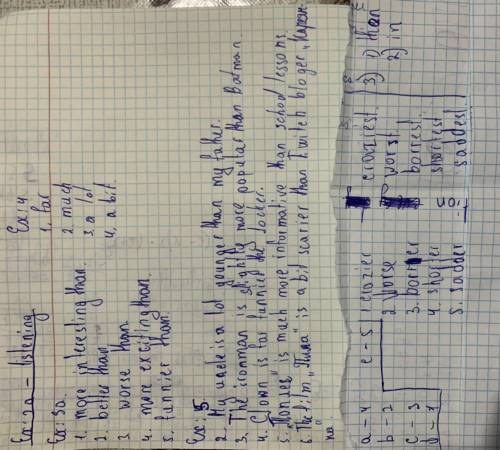 Ex: 2a - listening
Ex: 3a.
1. more interesting than.
2. better than
3. worse than.
4. more exciting than.
5. funnier than.
Ex: 4
1. far
2. much
3. a lot
4. a bit
Ex: 5.
2. My uncle is a lot younger than my father.
3. The ironman is slightly more popular than Batman
4. Clown is far the Jocker.
5. is much more informative than school lessons.
6. The film "Пила" is a bit scarier than twitch bloger
на".
a - 4 e - 5
b - 2
c - 3
1 crazier
2 worse
4. shorter
5. sadder
craziest
worst
shortest
saddest
3) 1) than
2) in